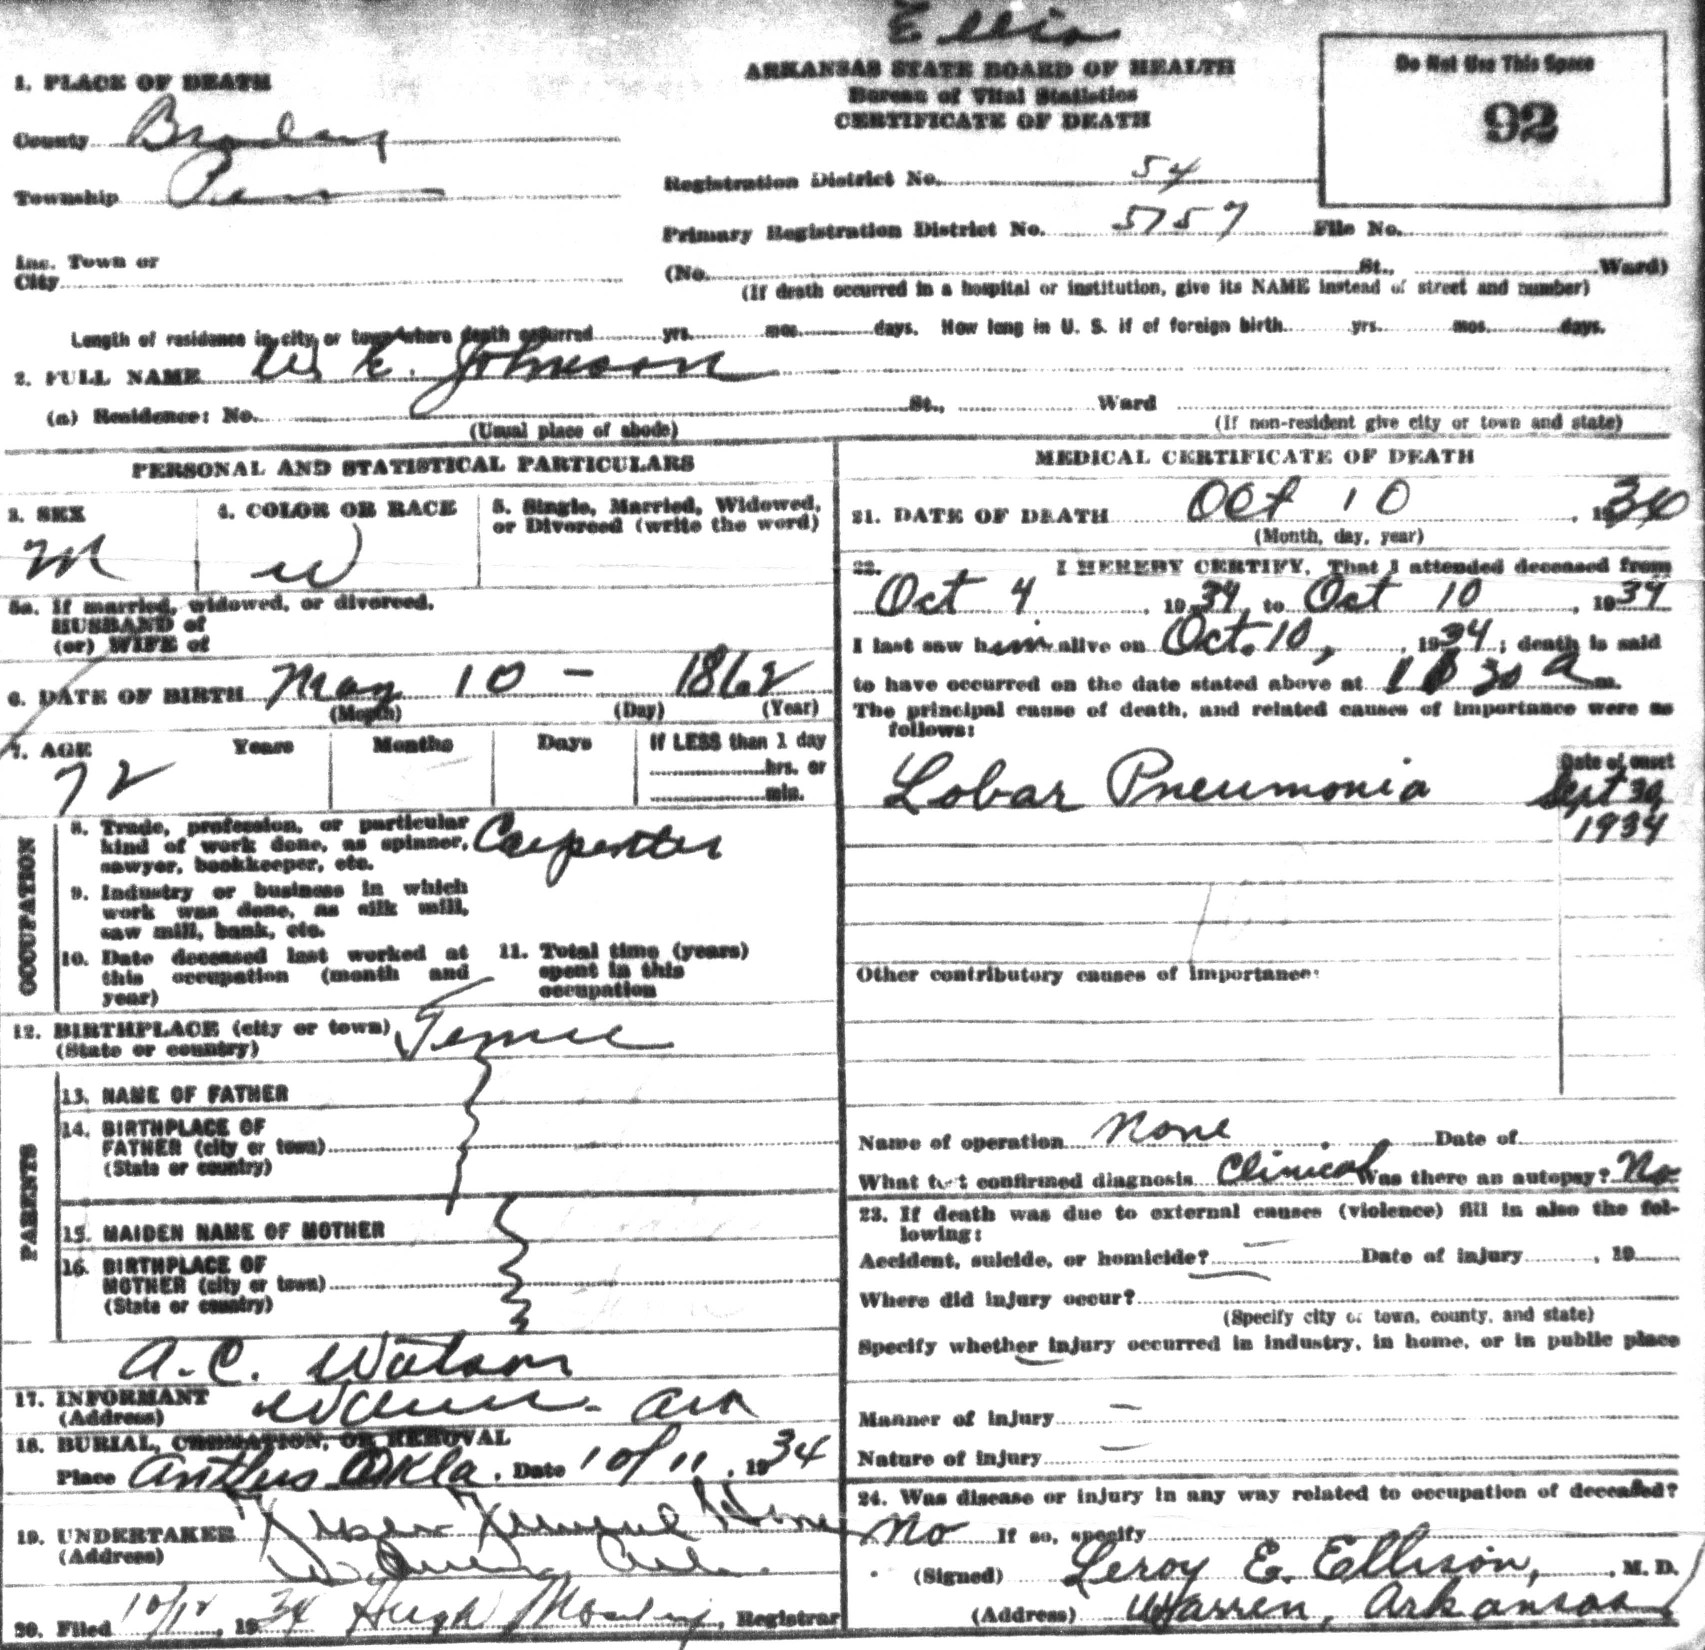 Ellis
ARKANSAS STATE BOARD OF HEALTH
Bureau of Vital Statistics
CERTIFICATE OF DEATH
Do Not Use This Space
92
1. PLACE OF DEATH
County Bradley
Township Penn
Inc. Town or
City
Registration District No. 54
Primary Registration District No. 5757 File No.
(No. St., Ward)
(If death occurred in a hospital or institution, give its NAME instead of street and number)
Length of residence in city or town where death occurred yrs. mos. days. How long in U. S. if of foreign birth yrs. mos. days.
2. FULL NAME W E. Johnson
(a) Residence: No. St., Ward
(Usual place of abode) (If non-resident give city or town and state)
PERSONAL AND STATISTICAL PARTICULARS
3. SEX
M
4. COLOR OR RACE
W
5. Single, Married, Widowed,
or Divorced (write the word)
5a. If married, widowed, or divorced,
HUSBAND of
(or) WIFE of
6. DATE OF BIRTH May 10 - 1862
(Month) (Day) (Year)
7. AGE Years Months Days If LESS than 1 day
72 hrs. or
min.
OCCUPATION
8. Trade, profession, or particular
kind of work done, as spinner,
sawyer, bookkeeper, etc. Carpenter
9. Industry or business in which
work was done, as silk mill,
saw mill, bank, etc.
10. Date deceased last worked at
this occupation (month and
year)
11. Total time (years)
spent in this
occupation
12. BIRTHPLACE (city or town) Tenn
(State or country)
PARENTS
13. NAME OF FATHER
14. BIRTHPLACE OF
FATHER (city or town)
(State or country)
15. MAIDEN NAME OF MOTHER
16. BIRTHPLACE OF
MOTHER (city or town)
(State or country)
A. C. Watson
17. INFORMANT
(Address) Warren - Ark
18. BURIAL, CREMATION, OR REMOVAL
Place Antlers Okla. Date 10/11, 1934
19. UNDERTAKER Funeral Home
(Address) Warren Ark.
20. Filed 10/12, 1934 Hugh Moseley, Registrar
MEDICAL CERTIFICATE OF DEATH
21. DATE OF DEATH Oct 10, 1934
(Month, day, year)
22. I HEREBY CERTIFY, That I attended deceased from
Oct 4, 1934, to Oct 10, 1934
I last saw him alive on Oct. 10, 1934; death is said
to have occurred on the date stated above at 30 A m.
The principal cause of death, and related causes of importance were as
follows:
Date of onset
Lobar Pneumonia Sept 30,
1934
Other contributory causes of importance:
Name of operation None Date of
What test confirmed diagnosis Clinical Was there an autopsy? No
23. If death was due to external causes (violence) fill in also the fol-
lowing:
Accident, suicide, or homicide? — Date of injury , 19
Where did injury occur?
(Specify city or town, county, and state)
Specify whether injury occurred in industry, in home, or in public place
Manner of injury —
Nature of injury —
24. Was disease or injury in any way related to occupation of deceased?
No If so, specify
(Signed) Leroy E. Ellison, M. D.
(Address) Warren, Arkansas